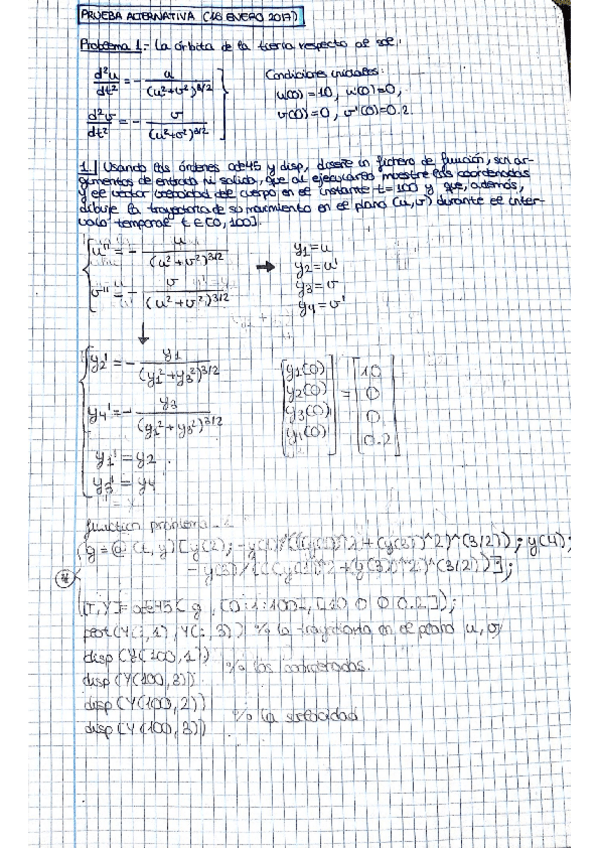 PRUEBA ALTERNATIVA (16 ENERO 2017)
Problema 1.- La órbita de la tierra respecto al sol:
d²u/dt² = - u/(u²+v²)^3/2
d²v/dt² = - v/(u²+v²)^3/2
Condiciones iniciales:
u(0)=10, u'(0)=0,
v(0)=0, v'(0)=0.2
1. Usando las órdenes ode45 y disp, diseñe un fichero de función, sin ar-
gumentos de entrada ni salida, que al ejecutarlo muestre las coordenadas
y el vector velocidad del cuerpo en el instante t=100 y que, además,
dibuje la trayectoria de su movimiento en el plano (u,v) durante el inter-
valo temporal t∈[0,100].
u'' = - u/(u²+v²)^3/2
v'' = - v/(u²+v²)^3/2
→
y1=u
y2=u'
y3=v
y4=v'
↓
y2' = - y1/(y1²+y3²)^3/2
y4' = - y3/(y1²+y3²)^3/2
y1' = y2
y3' = y4
[y1(0) y2(0) y3(0) y4(0)] = [10 0 0 0.2]
function problema
g=@(t,y)[y(2); -y(1)/((y(1)^2+(y(3))^2)^(3/2)); y(4);
-y(3)/(((y(1)^2+y(3)^2)^(3/2))];
[T,Y]=ode45(g,[0:1:100],[10 0 0 0.2]);
plot(Y(:,1),Y(:,3)) % la trayectoria en el plano (u,v)
disp(Y(100,1))
% las coordenadas.
disp(Y(100,3))
disp(Y(100,2))
% la velocidad
disp(Y(100,3))